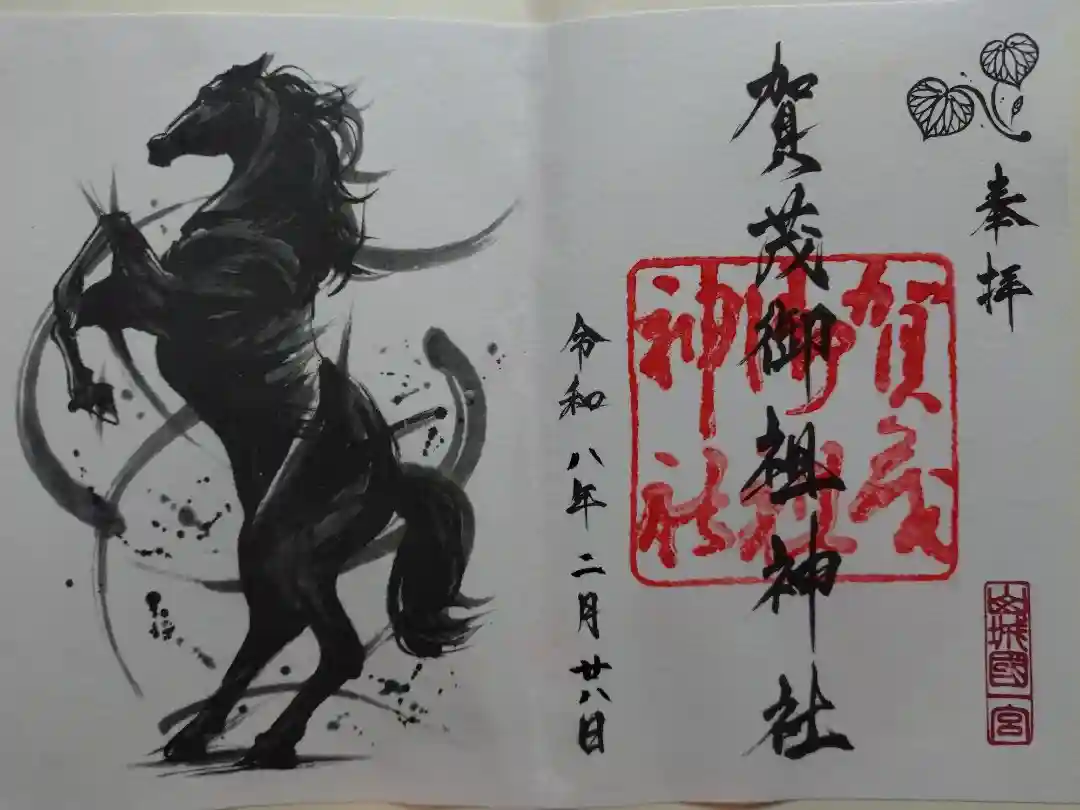 奉拝
山城國一宮
賀茂御祖神社
賀茂
御祖
神社
令和八年二月廿八日